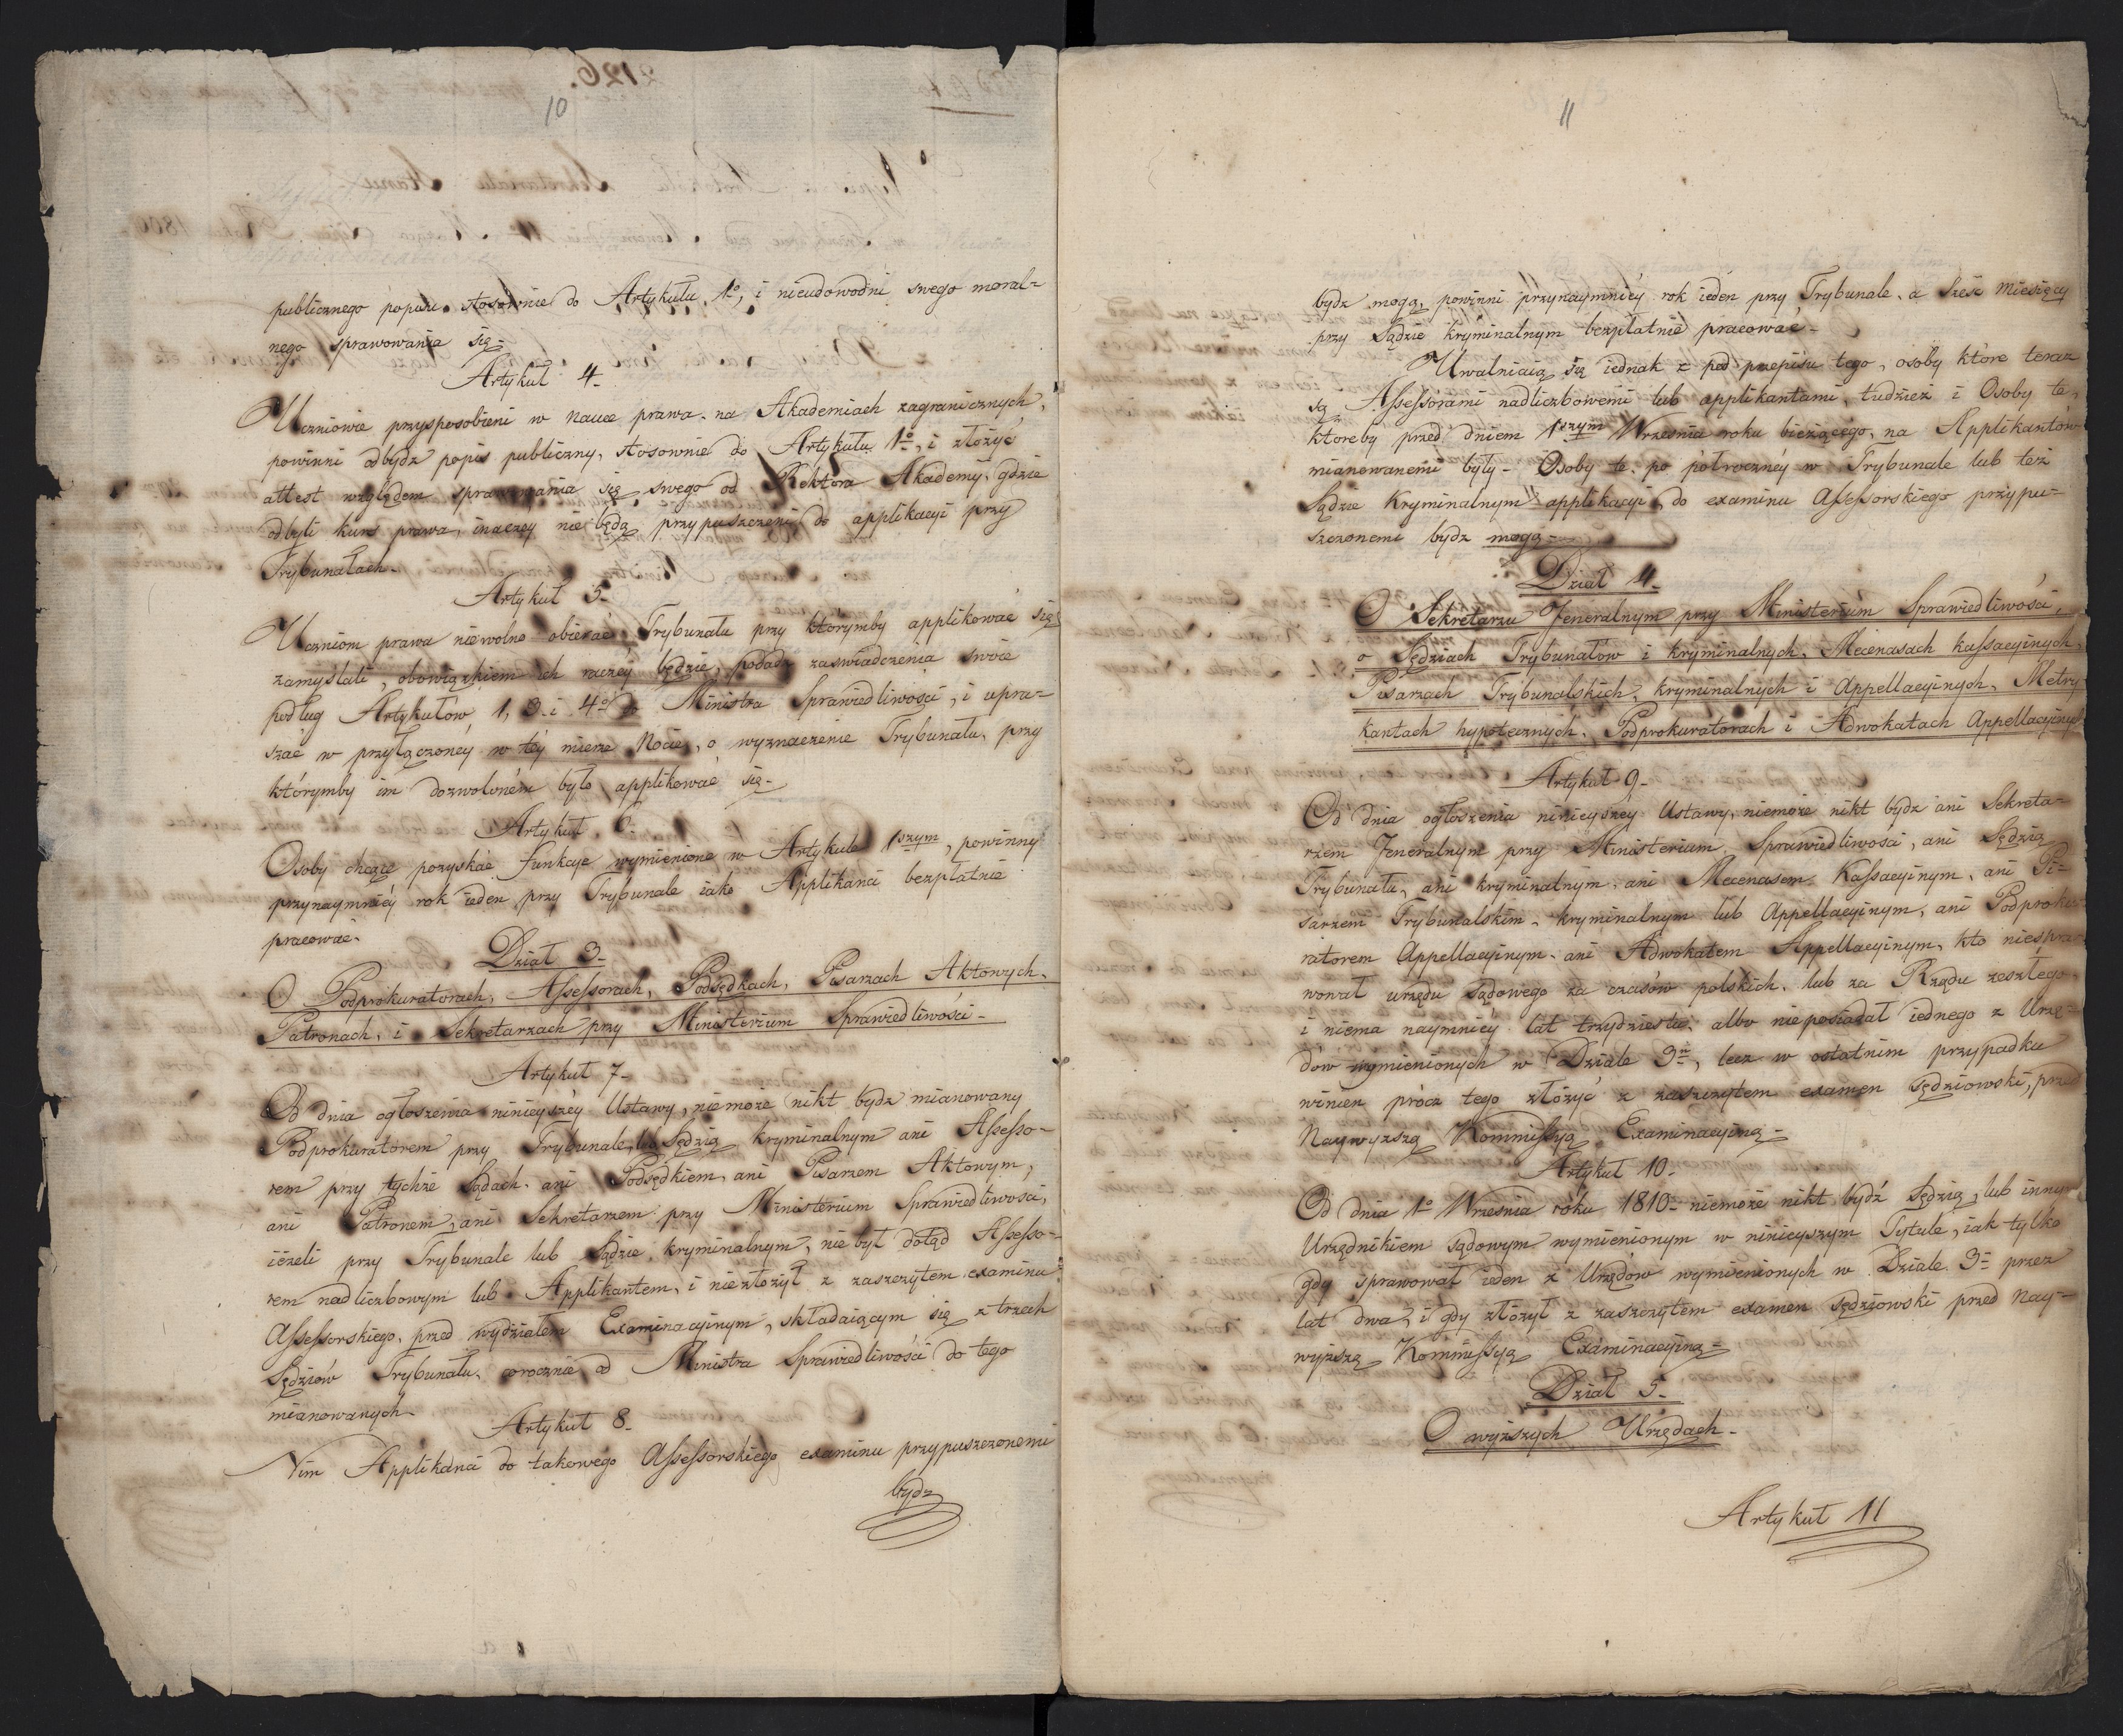 10
publicznego popisu stosownie do Artykułu 1º, i nieudowodni swego moral=
nego sprawowania się.
Artykuł 4.
Uczniowie przysposobieni w nauce prawa na Akademiach zagranicznych,
powinni odbydz popis publiczny, stosownie do Artykułu 1º, i złożyć
attest względem sprawowania się swego od Rektora Akademy, gdzie
odbyli kurs prawa, inaczéy nie będą przypuszczeni do applikacyi przy
Trybunałach.
Artykuł 5.
Uczniom prawa niewolno obierać Trybunału przy którymby applikować się
zamyślali, obowiązkiem ich raczéy będzie, podadź zaswiadczenia swoie
podług Artykułów 1, 3. i 4º do Ministra Sprawiedliwości, i upra=
szać w przyłączonéy w téy mierze Nocie, o wyznaczenie Trybunału, przy
którymby im dozwoloném było applikować się.
Artykuł 6.
Osoby chcące pozyskać funkcye wymienione w Artykule 1szym, powinny
przynaymniéy rok ieden przy Trybunale iako Applikanci bezpłatnie
pracować.
Dział 3.
O Podprokuratorach, Assessorach, Podsędkach, Pisarzach Aktowych,
Patronach, i Sekretarzach przy Ministerium Sprawiedliwości.
Artykuł 7.
Od dnia ogłoszenia ninieyszéy Ustawy, niemoże nikt bydz mianowany
Podprokuratorem przy Trybunale, lub Sędzią kryminalnym ani Assesso=
rem przy tychże Sądach, ani Podsędkiem, ani Pisarzem Aktowym,
ani Patronem, ani Sekretarzem przy Ministerium Sprawiedliwości,
ieżeli przy Trybunale lub Sądzie kryminalnym, nie był dotąd Assesso=
rem nadliczbowym lub Applikantem, i niezłożył z zaszczytem examinu
Assessorskiego, przed wydziałem Examinacyinym, składaiącym się z trzech
Sędziów Trybunału, corocznie od Ministra Sprawiedliwości do tego
mianowanych.
Artykuł 8.
Nim Applikanci do takowego Assessorskiego examinu przypuszczonemi
bydz
11
bydz mogą, powinni przynaymniéy rok ieden przy Trybunale, a Szesc Miesięcy
przy Sądzie kryminalnym bezpłatnie pracować.
Uwalniaią się iednak z pod przepisu tego, osoby które teraz
są Assessorami nadliczbowemi lub applikantami, tudzież i Osoby te,
któreby przed dniem 1szym Września roku bieżącego, na Applikantów
mianowanemi były. Osoby te po półrocznéy w Trybunale lub też
Sądzie Kryminalnym applikacyi, do examinu Assessorskiego przypu=
szczonemi bydz mogą.
Dział 4.
O Sekretarzu Jeneralnym przy Ministerium Sprawiedliwości,
o Sędziach Trybunałów i kryminalnych, Mecenasach kassacyinych,
Pisarzach Trybunalskich, kryminalnych i Appellacyinych, Metry
kantach hypotecznych, Podprokuratorach i Adwokatach Appellacyinych
Artykuł 9.
Od dnia ogłoszenia ninieyszéy Ustawy, niemoże nikt bydz ani Sekreta=
rzem Jeneralnym przy Ministerium Sprawiedliwości, ani Sędzią
Trybunału, ani kryminalnym, ani Mecenasem Kassacyinym, ani Pi=
sarzem Trybunalskim, kryminalnym lub Appellacyinym, ani Podproku
ratorem Appellacyinym, ani Adwokatem Appellacyinym, kto niespra
wował urzędu sądowego za czasów polskich, lub za Rządu zeszłego
i niema naymniéy lat trzydziestu, albo nieposiadał iednego z Urzę=
dów wymienionych w Dziale 3m, lecz w ostatnim przypadku
winien prócz tego złożyć z zaszczytem examen Sędziowski, przed
Naywyzszą Kommissyą Examinacyiną.
Artykuł 10.
Od dnia 1º Września roku 1810. niemoże nikt bydź Sędzią, lub innym
Urzędnikiem sądowym wymienionym w ninieyszym Tytule, iak tylko
gdy sprawował ieden z Urzędów wymienionych w Dziale 3. przez
lat dwa, i gdy złożył z zaszczytem examen Sędziowski przed Nay=
wyższą Kommissyą Examinacyiną.
Dział 5.
O wyższych Urzędach.
Artykuł 11